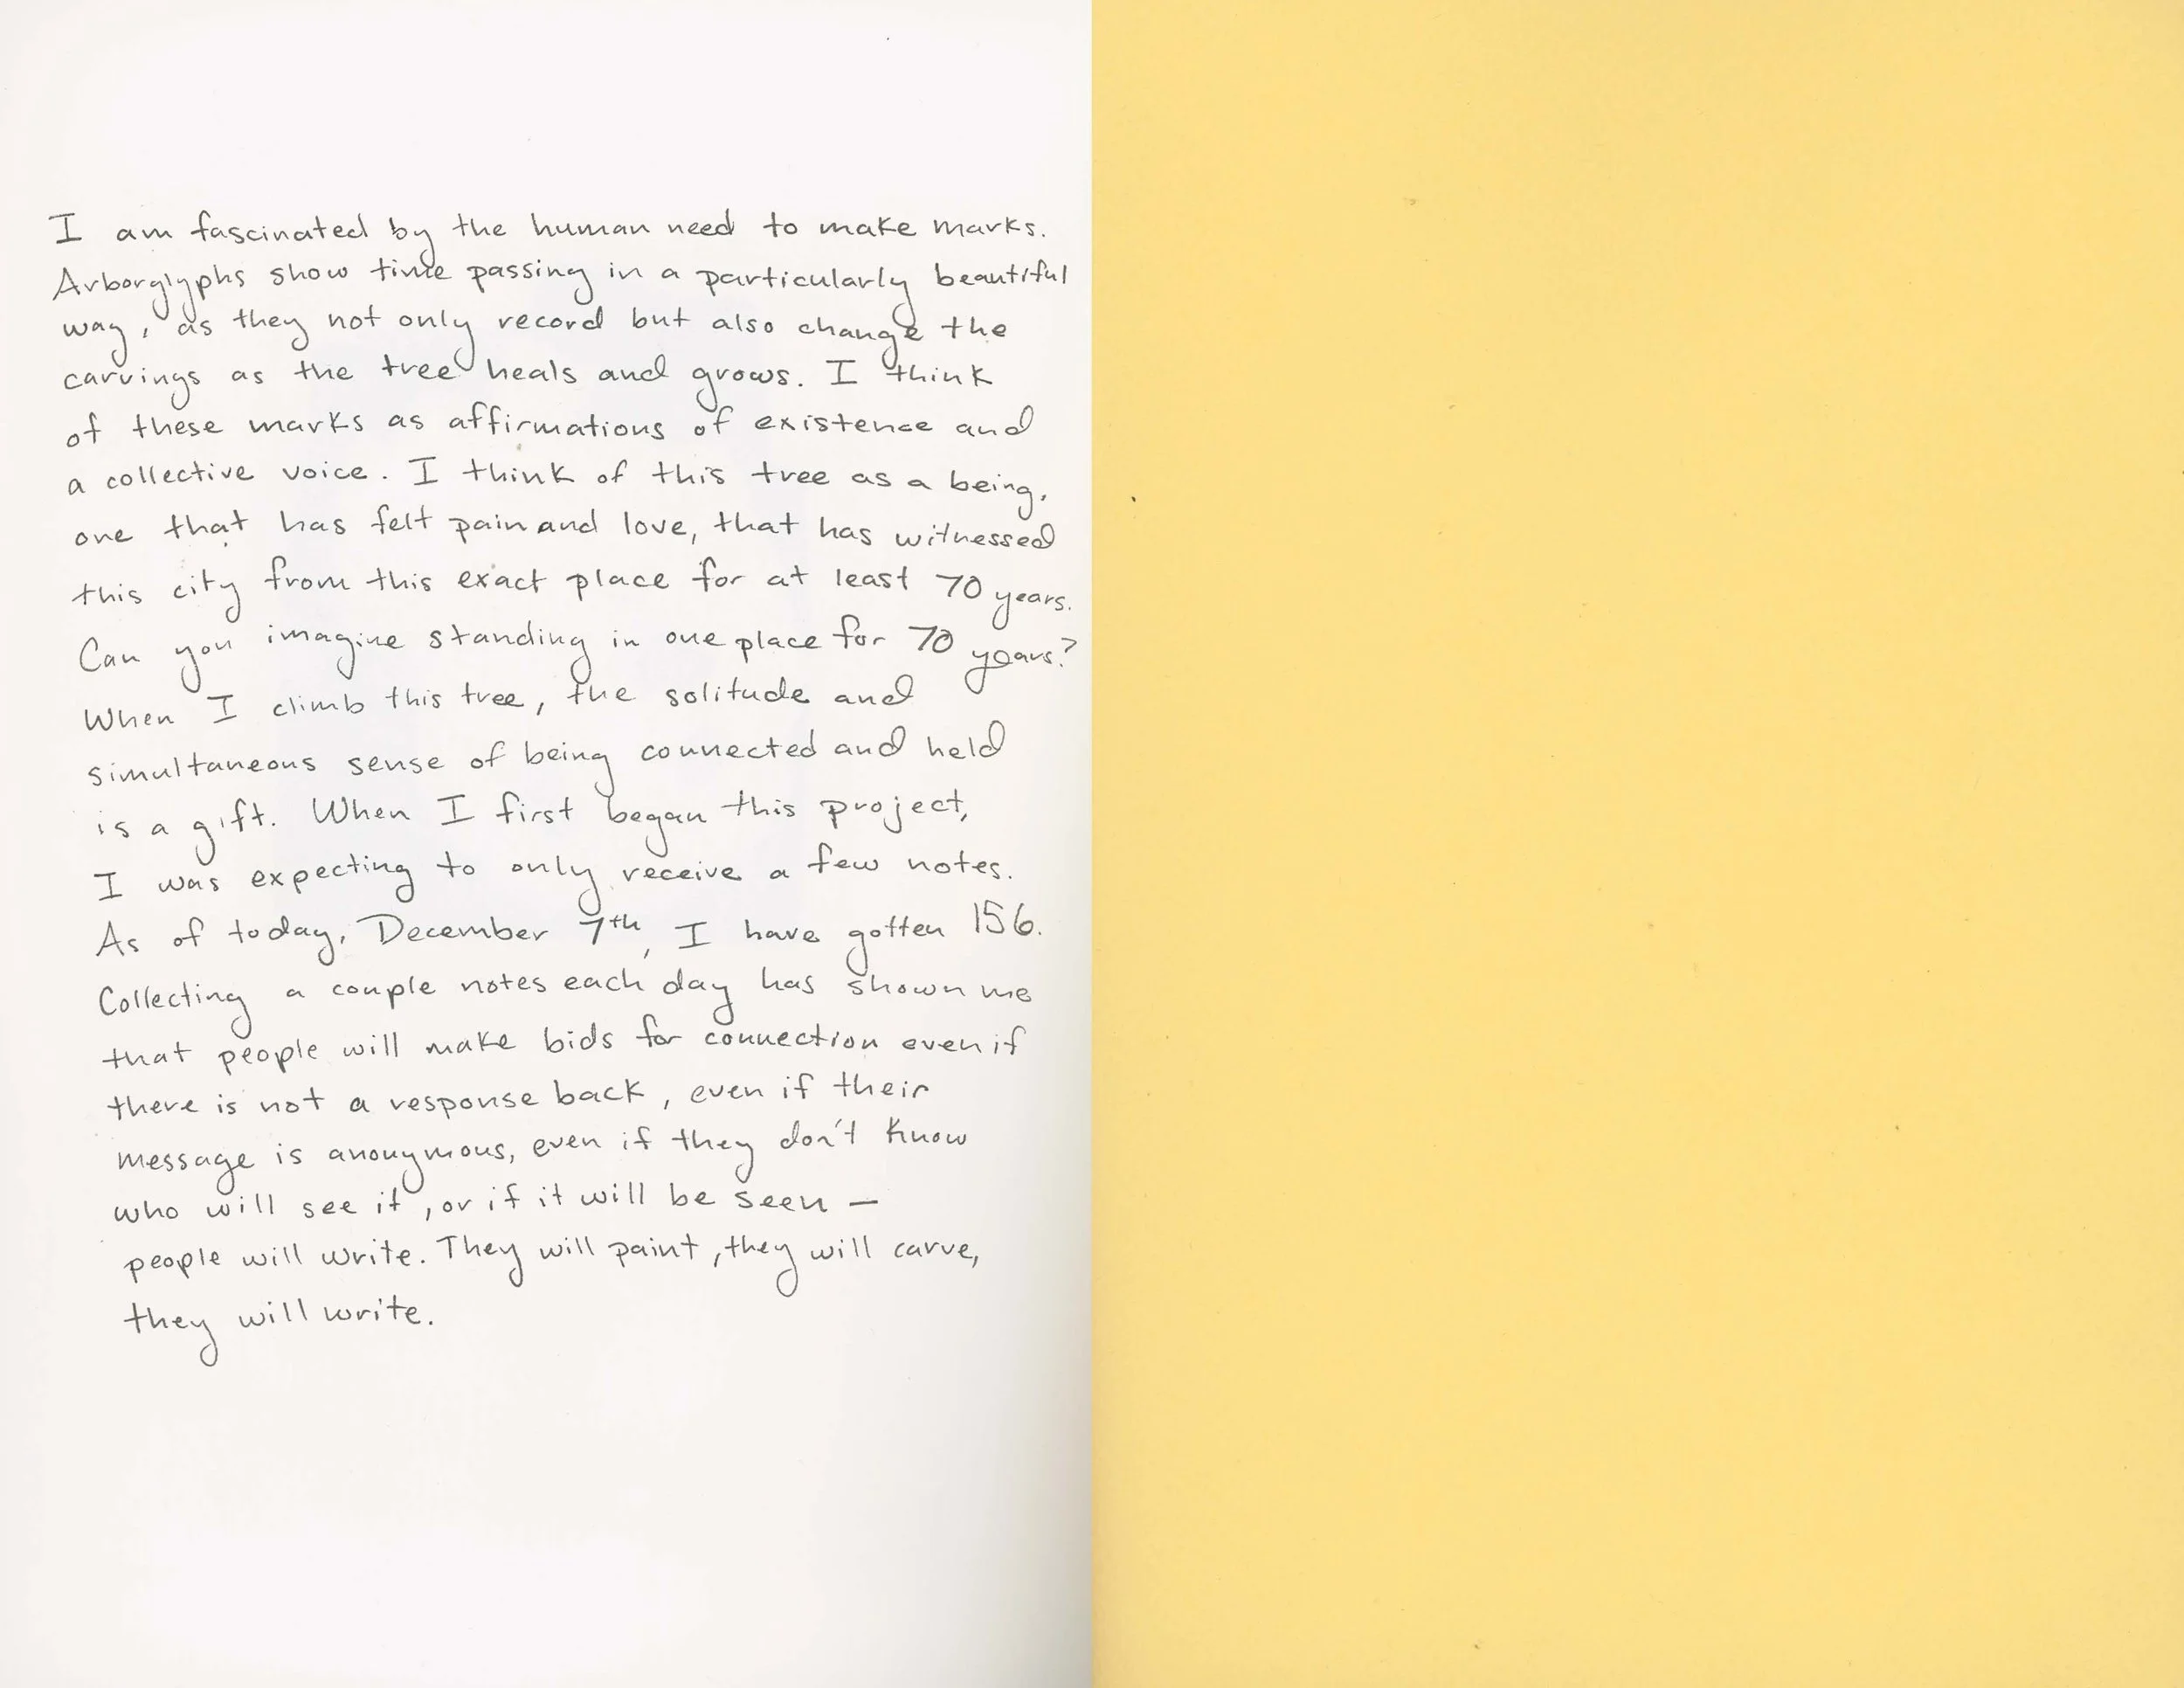 I am fascinated by the human need to make marks.
Arborglyphs show time passing in a particularly beautiful
way, as they not only record but also change the
carvings as the tree heals and grows. I think
of these marks as affirmations of existence and
a collective voice. I think of this tree as a being,
one that has felt pain and love, that has witnessed
this city from this exact place for at least 70 years.
Can you imagine standing in one place for 70 years?
When I climb this tree, the solitude and
simultaneous sense of being connected and held
is a gift. When I first began this project,
I was expecting to only receive a few notes.
As of today, December 7th, I have gotten 156.
Collecting a couple notes each day has shown me
that people will make bids for connection even if
there is not a response back, even if their
message is anonymous, even if they don't know
who will see it, or if it will be seen —
people will write. They will paint, they will carve,
they will write.